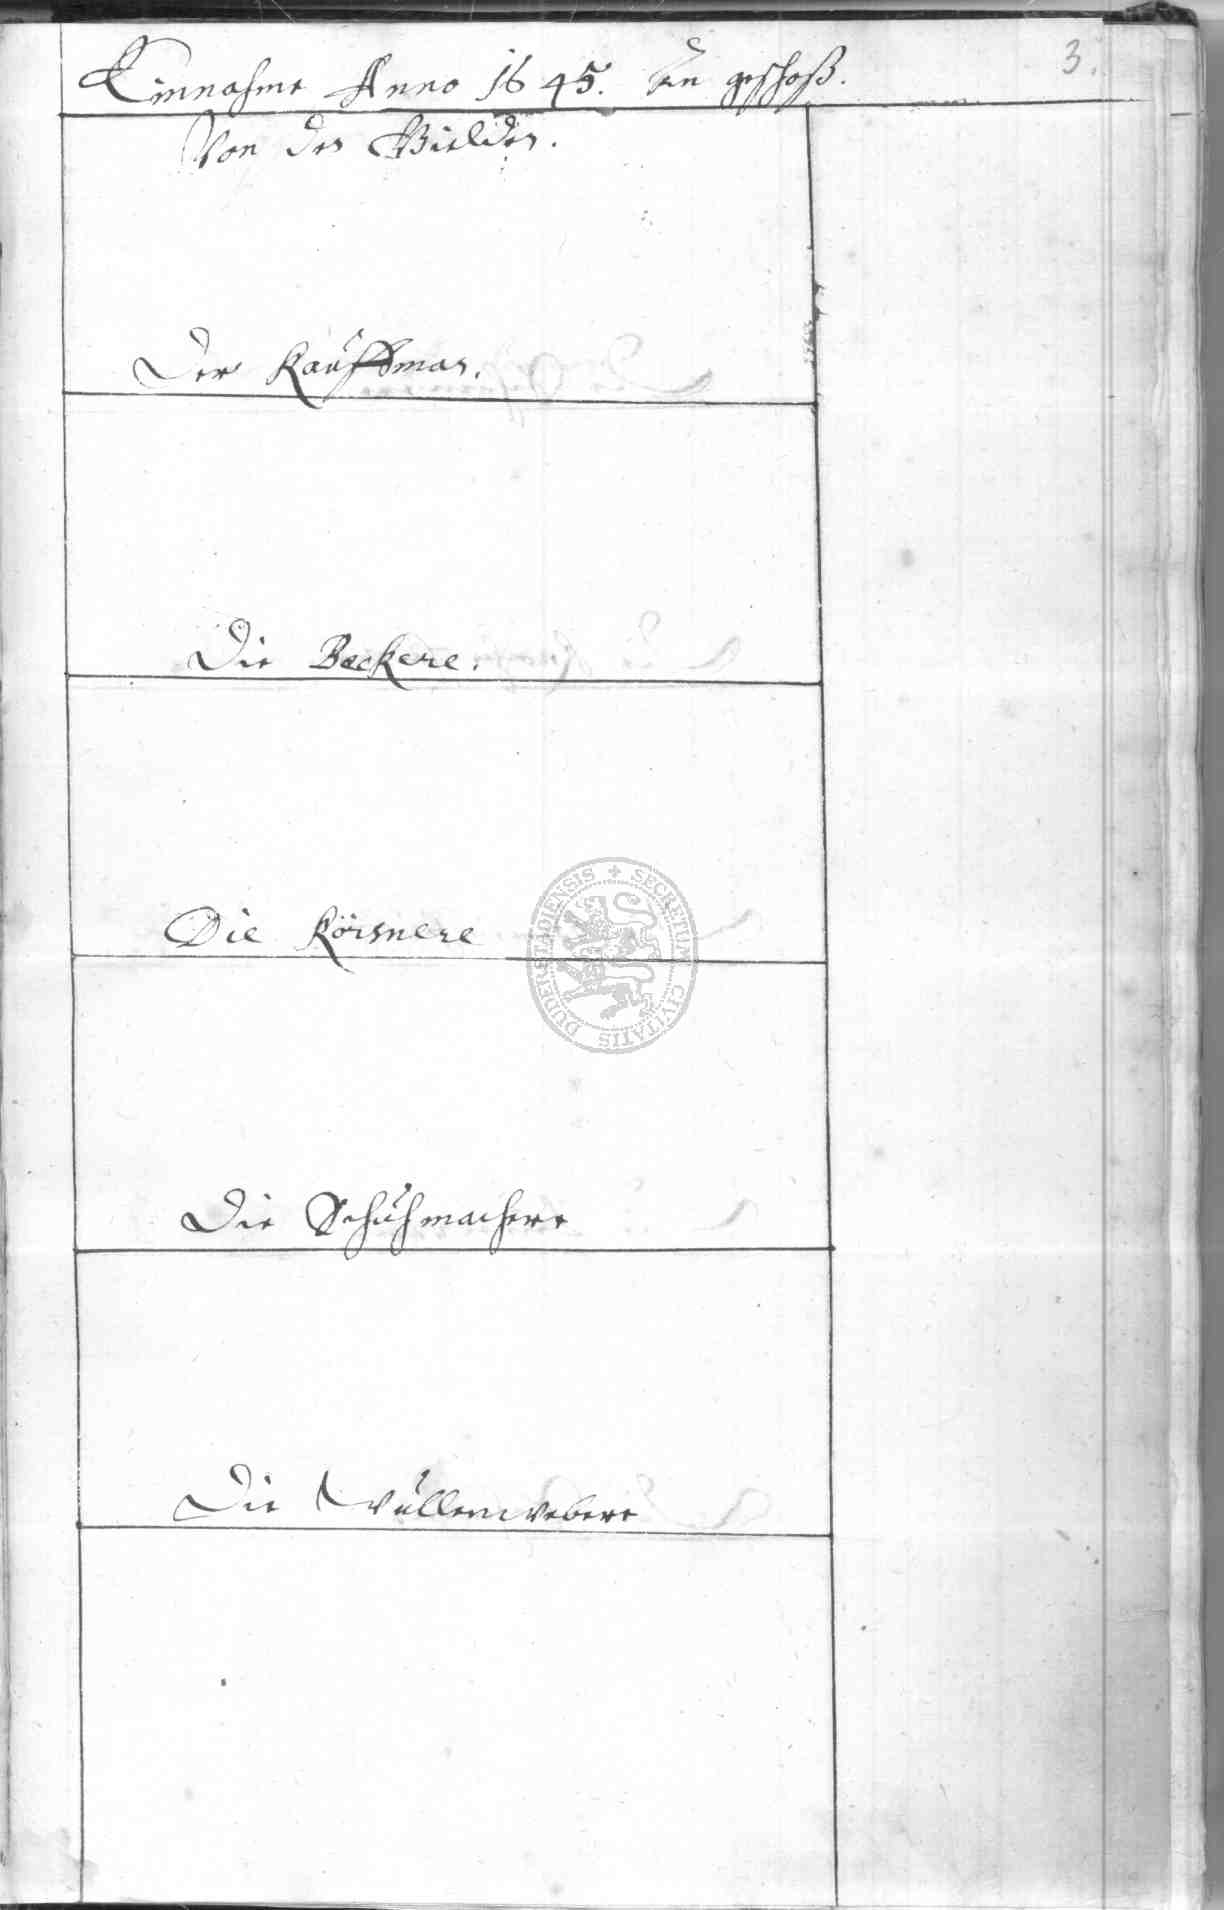 3.
Einnahme Anno 1645. An geschoß.
Von den Gielden.
Der Kauffman.
Die Beckere.
Die Körsnere
SECRETUM CIVITATIS DUDERSTADIENSIS
Die Schuhmachere
Die Wullenwebere